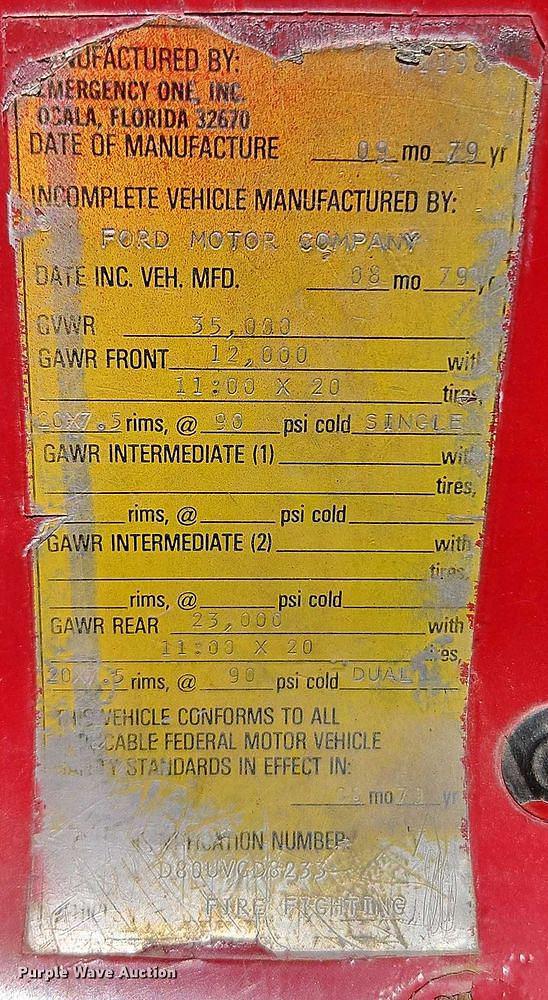 MANUFACTURED BY:
EMERGENCY ONE, INC.
OCALA, FLORIDA 32670
DATE OF MANUFACTURE 09 mo 79 yr
INCOMPLETE VEHICLE MANUFACTURED BY:
FORD MOTOR COMPANY
DATE INC. VEH. MFD. 08 mo 79 yr
GVWR 35,000
GAWR FRONT 12,000 with
11:00 X 20 tires,
20X7.5 rims, @ 90 psi cold SINGLE
GAWR INTERMEDIATE (1) with
tires,
rims, @ psi cold
GAWR INTERMEDIATE (2) with
tires,
rims, @ psi cold
GAWR REAR 23,000 with
11:00 X 20 tires,
20X7.5 rims, @ 90 psi cold DUAL
THIS VEHICLE CONFORMS TO ALL
APPLICABLE FEDERAL MOTOR VEHICLE
SAFETY STANDARDS IN EFFECT IN:
mo yr
IFICATION NUMBER:
FIRE FIGHTING
Purple Wave Auction